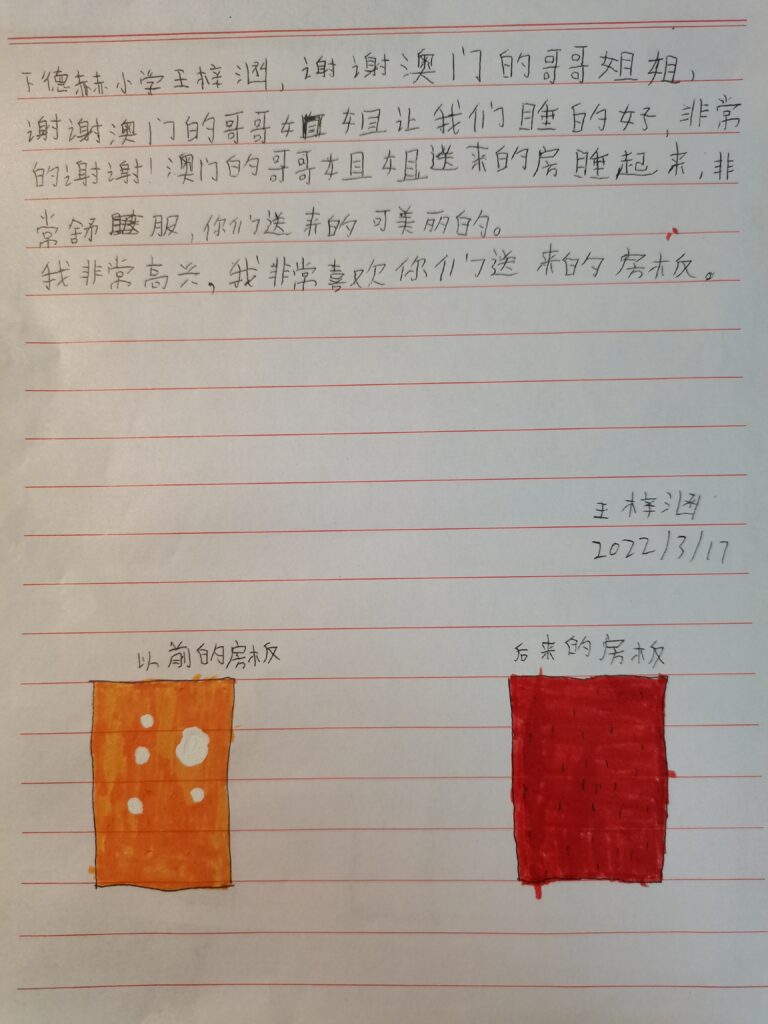 下德赫小学王梓涵，谢谢澳门的哥哥姐姐，
谢谢澳门的哥哥姐姐让我们睡的好，非常
的谢谢！澳门的哥哥姐姐送来的房睡起来，非
常舒服，你们送来的可美丽的。
我非常高兴，我非常喜欢你们送来的房板。
王梓涵
2022/3/17
以前的房板
后来的房板